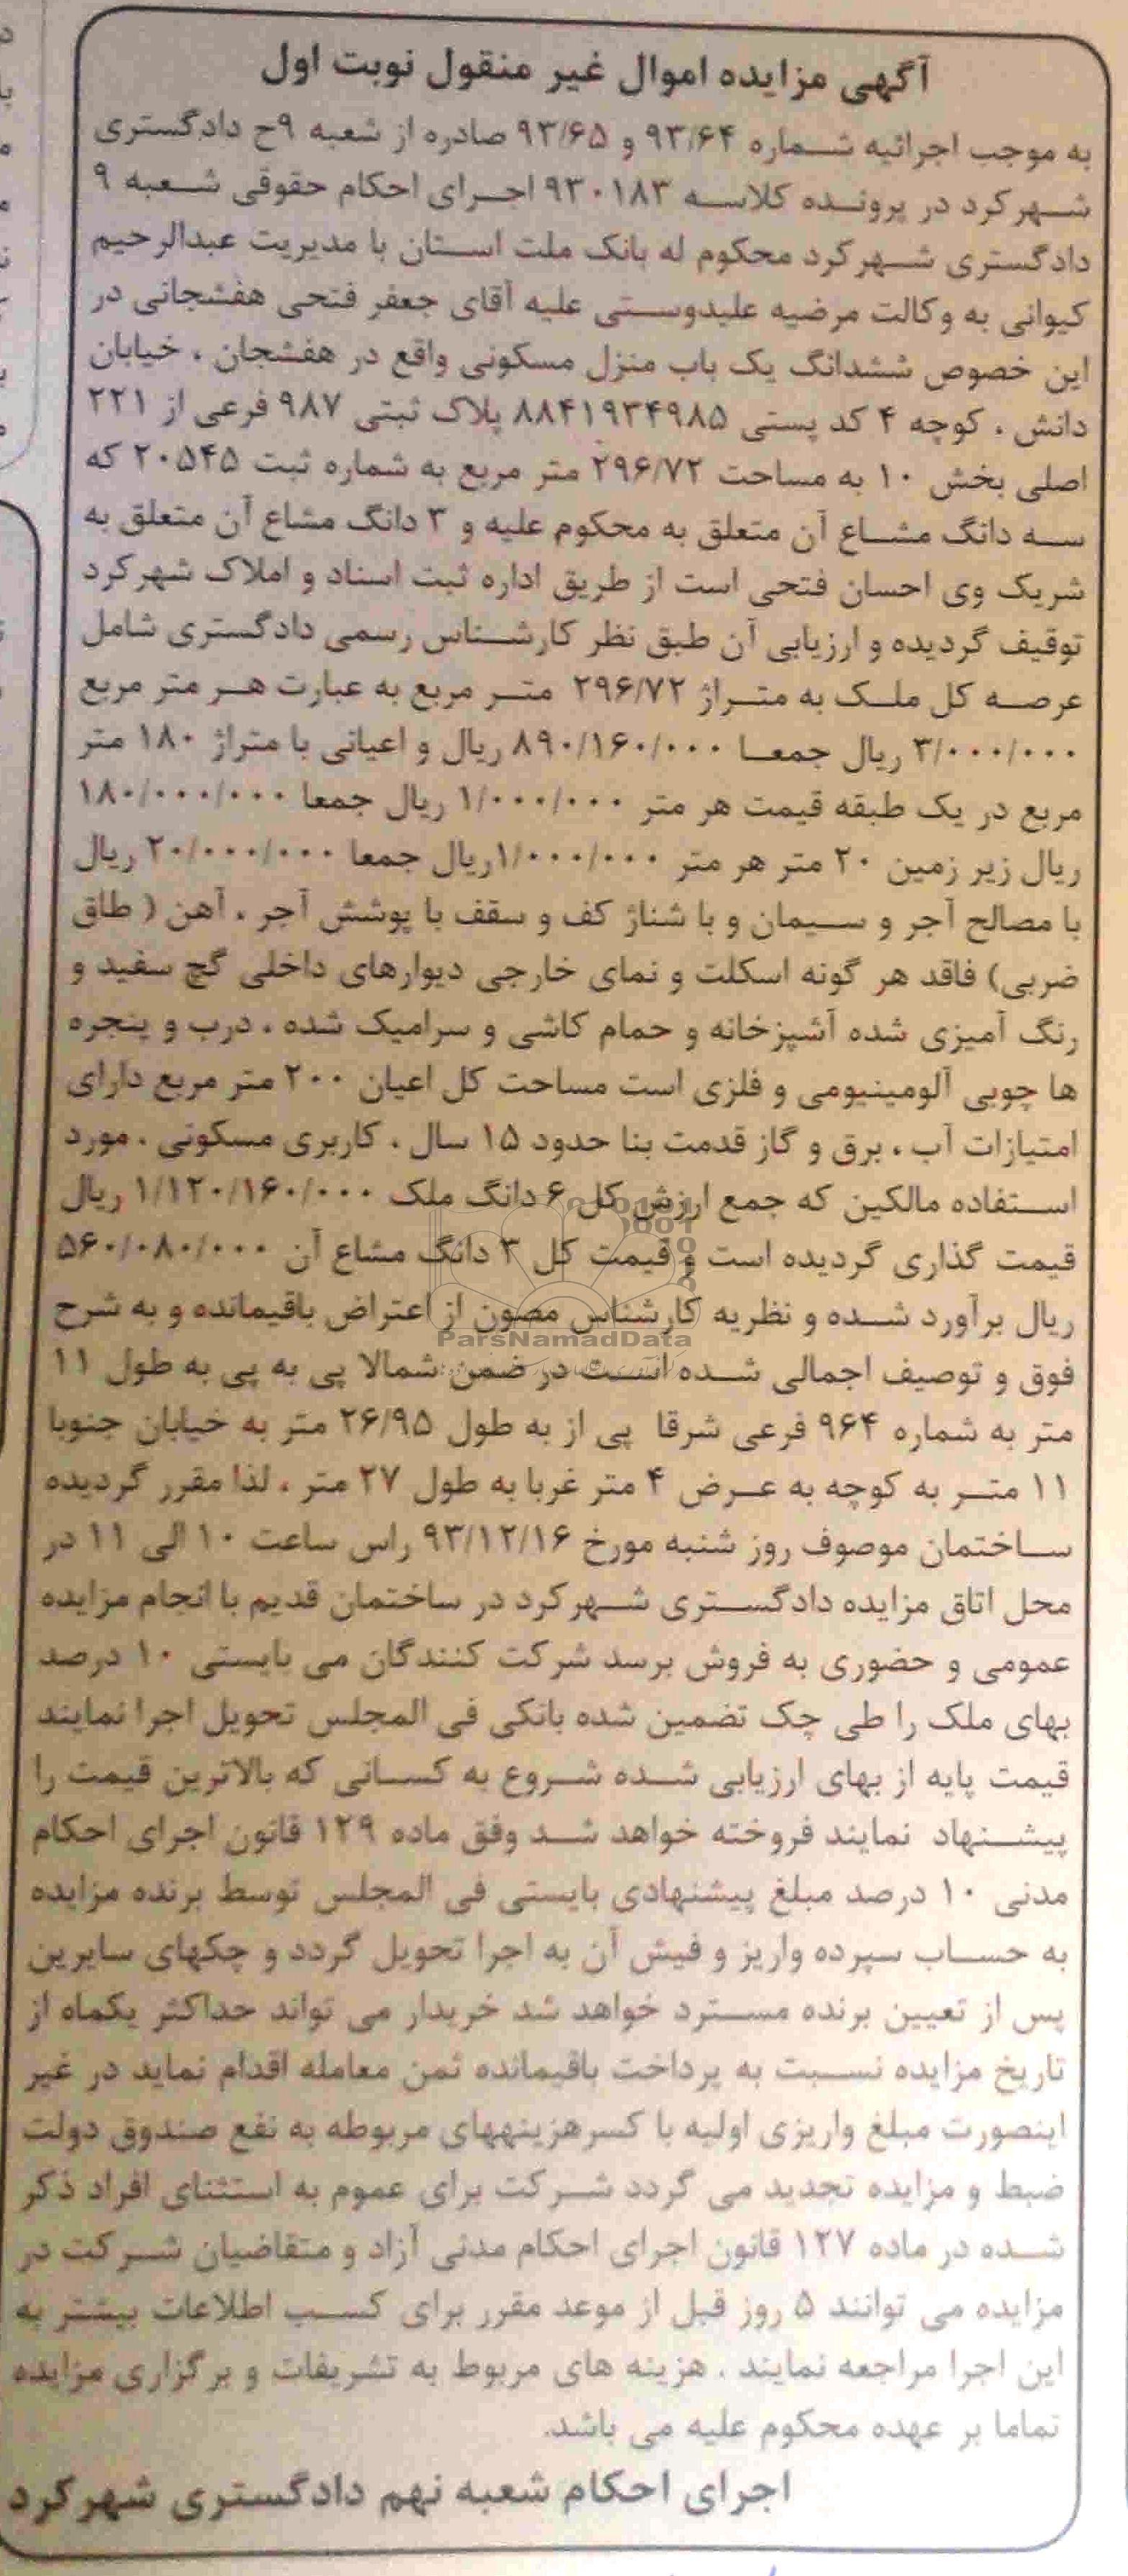 آگهی مزایده اموال غیر منقول نوبت اول
به موجب اجرائیه شماره ۹۳/۶۴ و ۹۳/۶۵ صادره از شعبه ۹ح دادگستری
شهرکرد در پرونده کلاسه ۹۳۰۱۸۳ اجرای احکام حقوقی شعبه ۹
دادگستری شهرکرد محکوم له بانک ملت استان با مدیریت عبدالرحیم
کیوانی به وکالت مرضیه علیدوستی علیه آقای جعفر فتحی هفشجانی در
این خصوص ششدانگ یک باب منزل مسکونی واقع در هفشجان ، خیابان
دانش ، کوچه ۴ کد پستی ۸۸۴۱۹۳۴۹۸۵ پلاک ثبتی ۹۸۷ فرعی از ۲۲۱
اصلی بخش ۱۰ به مساحت ۲۹۶/۷۲ متر مربع به شماره ثبت ۲۰۵۴۵ که
سه دانگ مشاع آن متعلق به محکوم علیه و ۳ دانگ مشاع آن متعلق به
شریک وی احسان فتحی است از طریق اداره ثبت اسناد و املاک شهرکرد
توقیف گردیده و ارزیابی آن طبق نظر کارشناس رسمی دادگستری شامل
عرصه کل ملک به متراژ ۲۹۶/۷۲ متر مربع به عبارت هر متر مربع
۳/۰۰۰/۰۰۰ ریال جمعا ۸۹۰/۱۶۰/۰۰۰ ریال و اعیانی با متراژ ۱۸۰ متر
مربع در یک طبقه قیمت هر متر ۱/۰۰۰/۰۰۰ ریال جمعا ۱۸۰/۰۰۰/۰۰۰
ریال زیر زمین ۲۰ متر هر متر ۱/۰۰۰/۰۰۰ریال جمعا ۲۰/۰۰۰/۰۰۰ ریال
با مصالح آجر و سیمان و با شناژ کف و سقف با پوشش آجر ، آهن ( طاق
ضربی) فاقد هر گونه اسکلت و نمای خارجی دیوارهای داخلی گچ سفید و
رنگ آمیزی شده آشپزخانه و حمام کاشی و سرامیک شده ، درب و پنجره
ها چوبی آلومینیومی و فلزی است مساحت کل اعیان ۲۰۰ متر مربع دارای
امتیازات آب ، برق و گاز قدمت بنا حدود ۱۵ سال ، کاربری مسکونی ، مورد
استفاده مالکین که جمع ارزش کل ۶ دانگ ملک ۱/۱۲۰/۱۶۰/۰۰۰ ریال
قیمت گذاری گردیده است و قیمت کل ۳ دانگ مشاع آن ۵۶۰/۰۸۰/۰۰۰
ریال برآورد شده و نظریه کارشناس مصون از اعتراض باقیمانده و به شرح
ParsNamadData
فوق و توصیف اجمالی شده است در ضمن شمالا پی به پی به طول ۱۱
متر به شماره ۹۶۴ فرعی شرقا پی از به طول ۲۶/۹۵ متر به خیابان جنوبا
۱۱ متر به کوچه به عرض ۴ متر غربا به طول ۲۷ متر ، لذا مقرر گردیده
ساختمان موصوف روز شنبه مورخ ۹۳/۱۲/۱۶ راس ساعت ۱۰ الی ۱۱ در
محل اتاق مزایده دادگستری شهرکرد در ساختمان قدیم با انجام مزایده
عمومی و حضوری به فروش برسد شرکت کنندگان می بایستی ۱۰ درصد
بهای ملک را طی چک تضمین شده بانکی فی المجلس تحویل اجرا نمایند
قیمت پایه از بهای ارزیابی شده شروع به کسانی که بالاترین قیمت را
پیشنهاد نمایند فروخته خواهد شد وفق ماده ۱۲۹ قانون اجرای احکام
مدنی ۱۰ درصد مبلغ پیشنهادی بایستی فی المجلس توسط برنده مزایده
به حساب سپرده واریز و فیش آن به اجرا تحویل گردد و چکهای سایرین
پس از تعیین برنده مسترد خواهد شد خریدار می تواند حداکثر یکماه از
تاریخ مزایده نسبت به پرداخت باقیمانده ثمن معامله اقدام نماید در غیر
اینصورت مبلغ واریزی اولیه با کسرهزینههای مربوطه به نفع صندوق دولت
ضبط و مزایده تجدید می گردد شرکت برای عموم به استثنای افراد ذکر
شده در ماده ۱۲۷ قانون اجرای احکام مدنی آزاد و متقاضیان شرکت در
مزایده می توانند ۵ روز قبل از موعد مقرر برای کسب اطلاعات بیشتر به
این اجرا مراجعه نمایند . هزینه های مربوط به تشریفات و برگزاری مزایده
تماما بر عهده محکوم علیه می باشد.
اجرای احکام شعبه نهم دادگستری شهرکرد